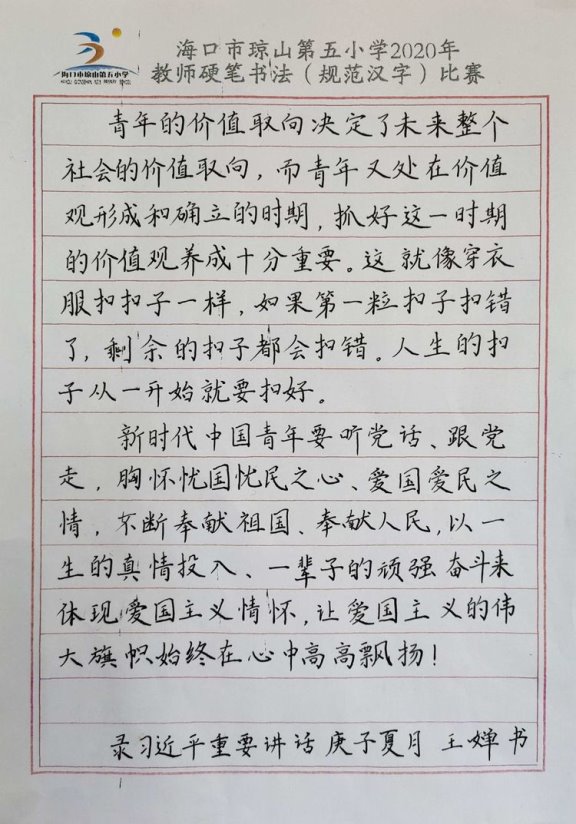 海口市琼山第五小学
海口市琼山第五小学2020年
教师硬笔书法(规范汉字)比赛
青年的价值取向决定了未来整个
社会的价值取向,而青年又处在价值
观形成和确立的时期,抓好这一时期
的价值观养成十分重要。这就像穿衣
服扣扣子一样,如果第一粒扣子扣错
了,剩余的扣子都会扣错。人生的扣
子从一开始就要扣好。
新时代中国青年要听党话、跟党
走,胸怀忧国忧民之心、爱国爱民之
情,不断奉献祖国、奉献人民,以一
生的真情投入、一辈子的顽强奋斗来
体现爱国主义情怀,让爱国主义的伟
大旗帜始终在心中高高飘扬!
录习近平重要讲话 庚子夏月 王婵书